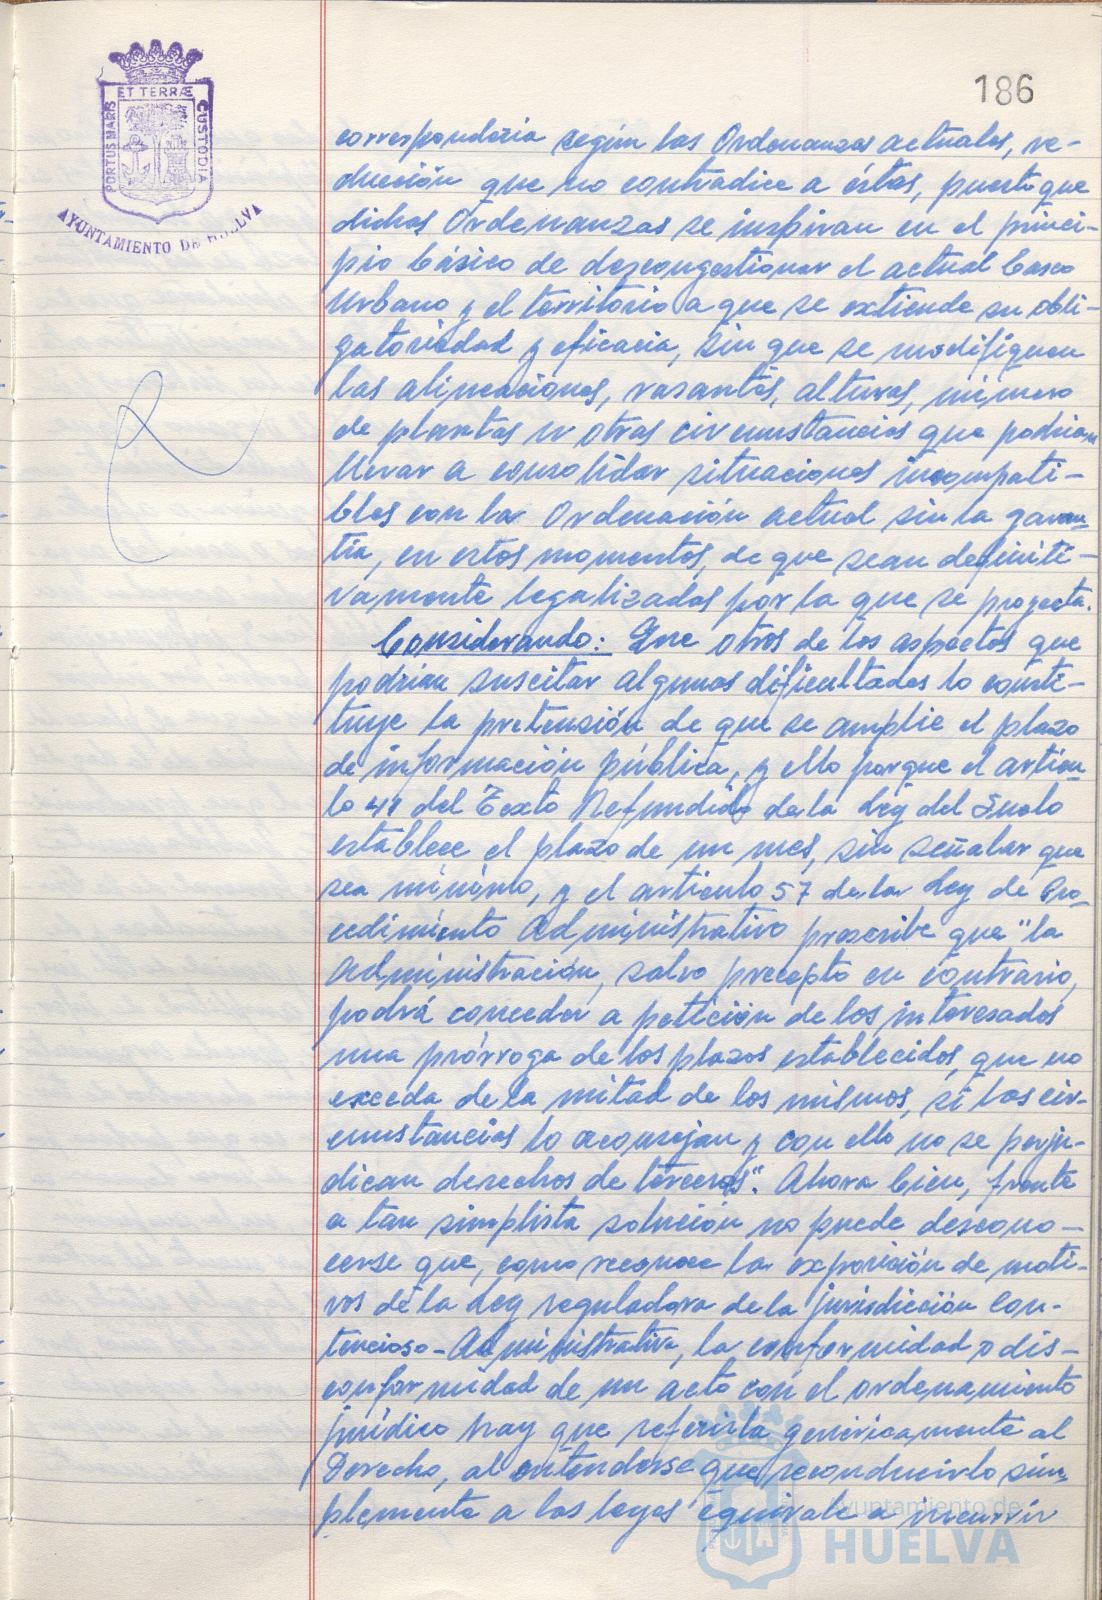 186
ET TERRÆ
PORTUS MARIS
CUSTODIA
AYUNTAMIENTO DE HUELVA
correspondería según las Ordenanzas actuales, re-
ducción que no contradice a éstas, puesto que
dichas Ordenanzas se inspiran en el princi-
pio básico de descongestionar el actual Casco
Urbano y el territorio a que se extiende su obli-
gatoriedad y eficacia, sin que se modifiquen
las alineaciones, rasantes, alturas, número
de plantas u otras circunstancias que podrían
llevar a consolidar situaciones incompati-
bles con la Ordenación actual sin la garan-
tía, en estos momentos, de que sean definiti-
vamente legalizadas por la que se proyecta.
Considerando: Que otros de los aspectos que
podrían suscitar algunas dificultades lo consti-
tuye la pretensión de que se amplie el plazo
de información pública, y ello porque el artícu
lo 41 del Texto Refundido de la Ley del Suelo
establece el plazo de un mes, sin señalar que
sea mínimo, y el artículo 57 de la Ley de Pro-
cedimiento Administrativo prescribe que "la
Administración, salvo precepto en contrario,
podrá conceder a petición de los interesados
una prórroga de los plazos establecidos, que no
exceda de la mitad de los mismos, si las cir-
cunstancias lo aconsejan y con ello no se perju-
dican derechos de terceros". Ahora bien, frente
a tan simplista solución no puede descono-
cerse que, como reconoce la exposición de moti-
vos de la Ley reguladora de la jurisdicción Con-
tencioso-Administrativa, la conformidad o dis-
conformidad de un acto con el ordenamiento
jurídico hay que referirla genéricamente al
Derecho, al entenderse que reconducirlo sim
plemente a las leyes equivale a incurrir
Ayuntamiento de
HUELVA